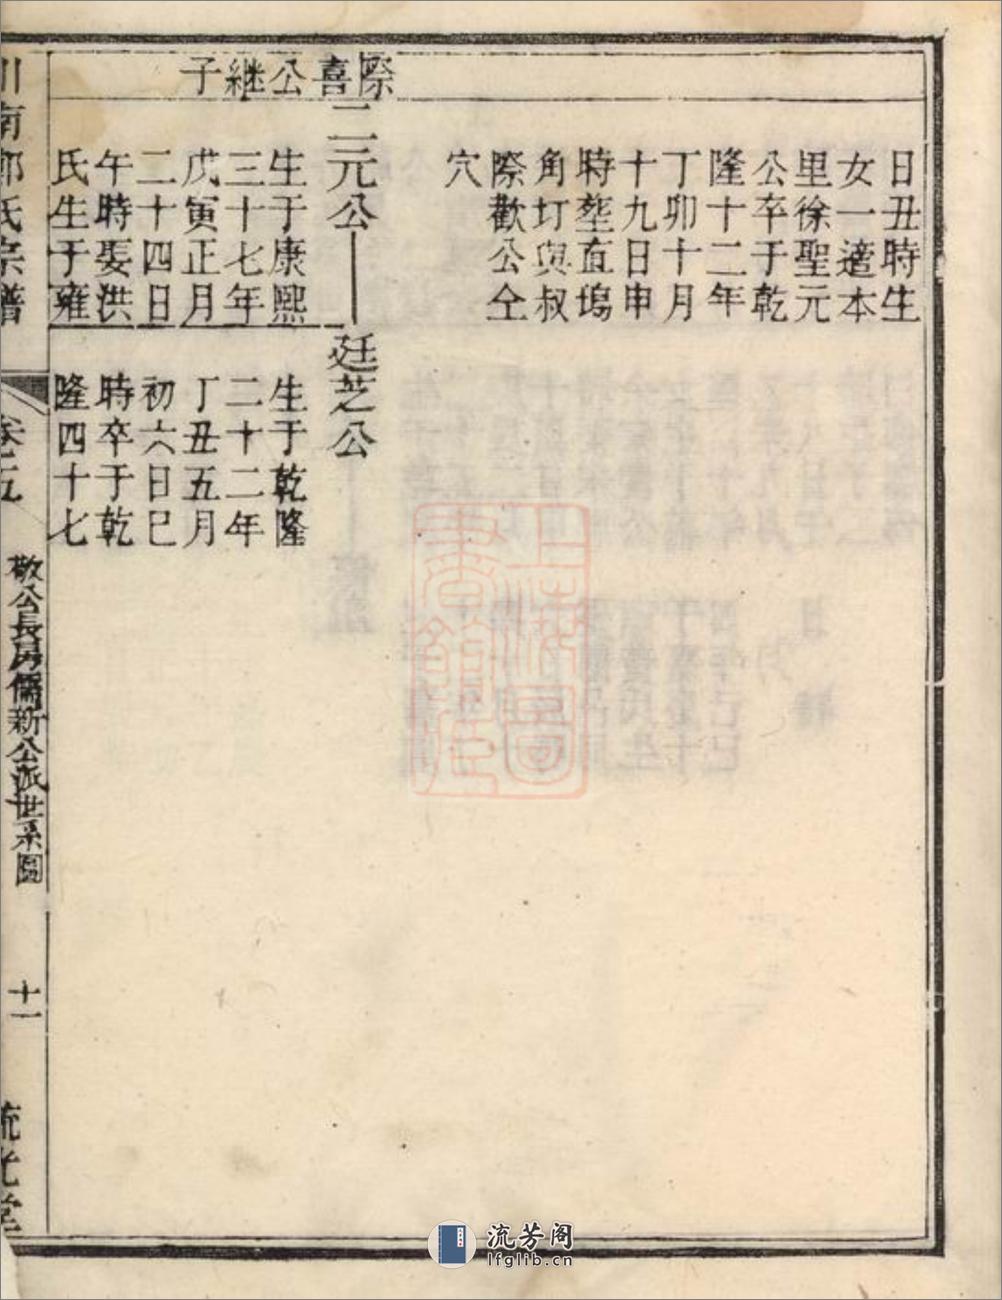 際喜公繼子
日丑時生
女一適本
里徐聖元
公卒于乾
隆十二年
丁卯十月
十九日申
時塟直塢
角圢與叔
際歡公仝
穴
二元公
生于康熙
三十七年
戊寅正月
二十四日
午時娶洪
氏生于雍
廷芝公
生于乾隆
二十二年
丁丑五月
初六日巳
時卒于乾
隆四十七
川南郭氏宗譜
卷之五
敬公長房儒新公派世系圖
十一
流光堂
上海圖書館藏
流芳阁
lfglib.cn